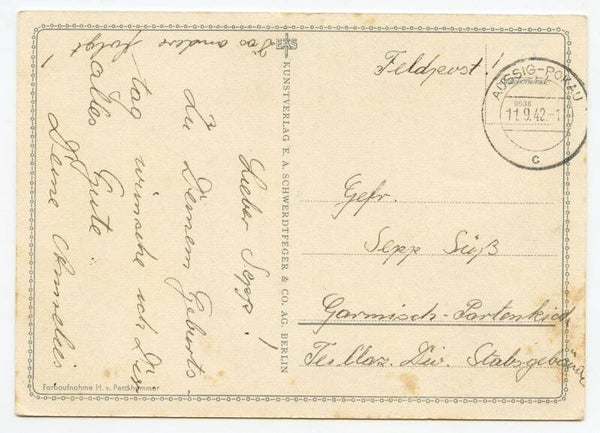 Lieber Sepp!
Zu Deinem Geburts-
tag wünsche ich Dir
alles Gute
Deine Annelies
!
Das andere folgt
KUNSTVERLAG E. A. SCHWERDTFEGER & CO. AG. BERLIN
EAS
Farbaufnahme H. v. Perckhammer
Feldpost!
AUSSIG-POKAU
9638
11.9.42.-1
c
Gefr.
Sepp Süß
Garmisch-Partenkirch
Tei. Laz. Div. Stabsgebäude